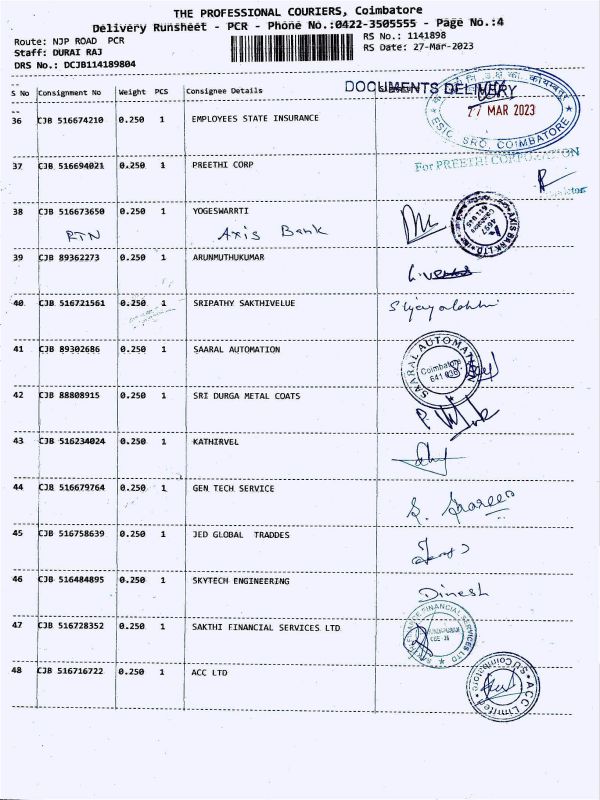 THE PROFESSIONAL COURIERS, Coimbatore
Delivery Runsheet - PCR - Phone No.:0422-3505555 - Page No.:4
Route: NJP ROAD PCR
RS No.: 1141898
Staff: DURAI RAJ
RS Date: 27-Mar-2023
DRS No.: DCJB114189804
DOCUMENTS DELIVERY
S No Consignment No Weight PCS Consignee Details
27 MAR 2023
ESIC, SRO, COIMBATORE
36 CJB 516674210 0.250 1 EMPLOYEES STATE INSURANCE
For PREETHI CORPORATION
37 CJB 516694021 0.250 1 PREETHI CORP
38 CJB 516673650 0.250 1 YOGESWARRTI
RTN Axis Bank
AXIS BANK LTD
39 CJB 89362273 0.250 1 ARUNMUTHUKUMAR
40 CJB 516721561 0.250 1 SRIPATHY SAKTHIVELUE
41 CJB 89302686 0.250 1 SAARAL AUTOMATION
SAARAL AUTOMATION
Coimbatore
641 035
42 CJB 88808915 0.250 1 SRI DURGA METAL COATS
43 CJB 516234024 0.250 1 KATHIRVEL
44 CJB 516679764 0.250 1 GEN TECH SERVICE
45 CJB 516758639 0.250 1 JED GLOBAL TRADDES
46 CJB 516484895 0.250 1 SKYTECH ENGINEERING
Dinesh
47 CJB 516728352 0.250 1 SAKTHI FINANCIAL SERVICES LTD
48 CJB 516716722 0.250 1 ACC LTD
ACC Limited